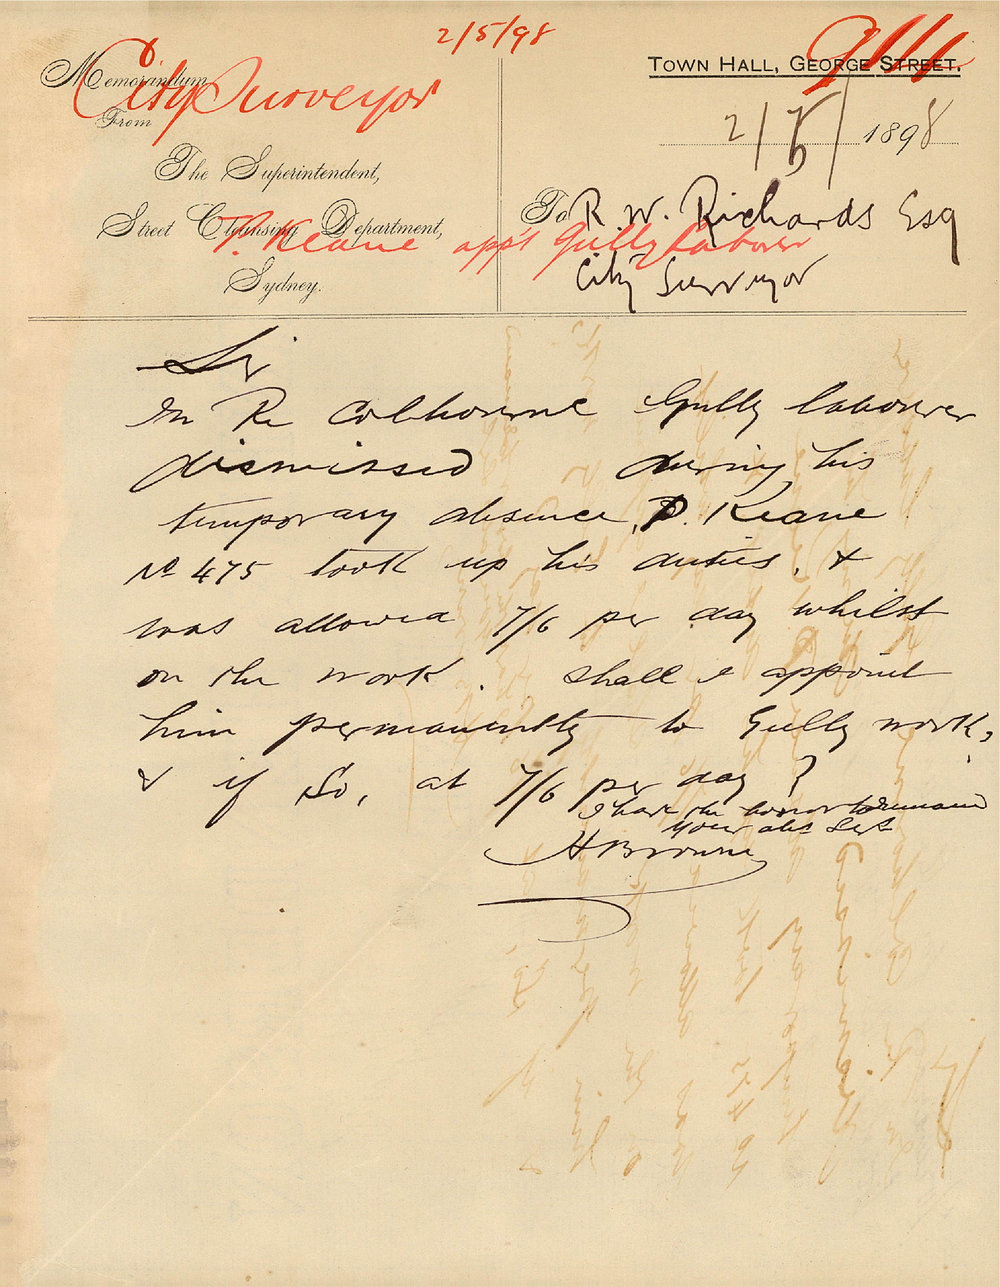 2/5/98
Memorandum
City Surveyor
From
The Superintendent,
Street Cleansing Department,
Sydney.
TOWN HALL, GEORGE STREET.
2/5/1898
To R. W. Richards Esq
City Surveyor
P. Keane app't Gully Labourer
Sir
In Re Colbourne Gully labourer
dismissed during his
temporary absence, P. Keane
No 475 took up his duties, &
was allowed 7/6 per day whilst
on the work. Shall I appoint
him permanently to Gully work,
& if So, at 7/6 per day?
I have the honor to remain
Your obt Sert
H Browne